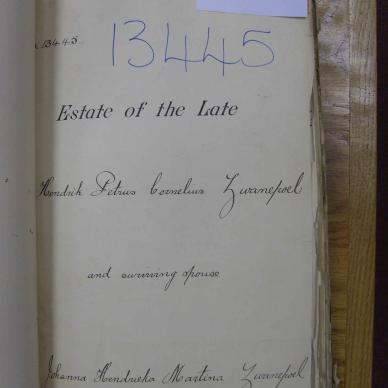 13445
13445
Estate of the Late
Hendrik Petrus Cornelius Zwanepoel
and surviving spouse
Johanna Hendrieka Martina Zwanepoel